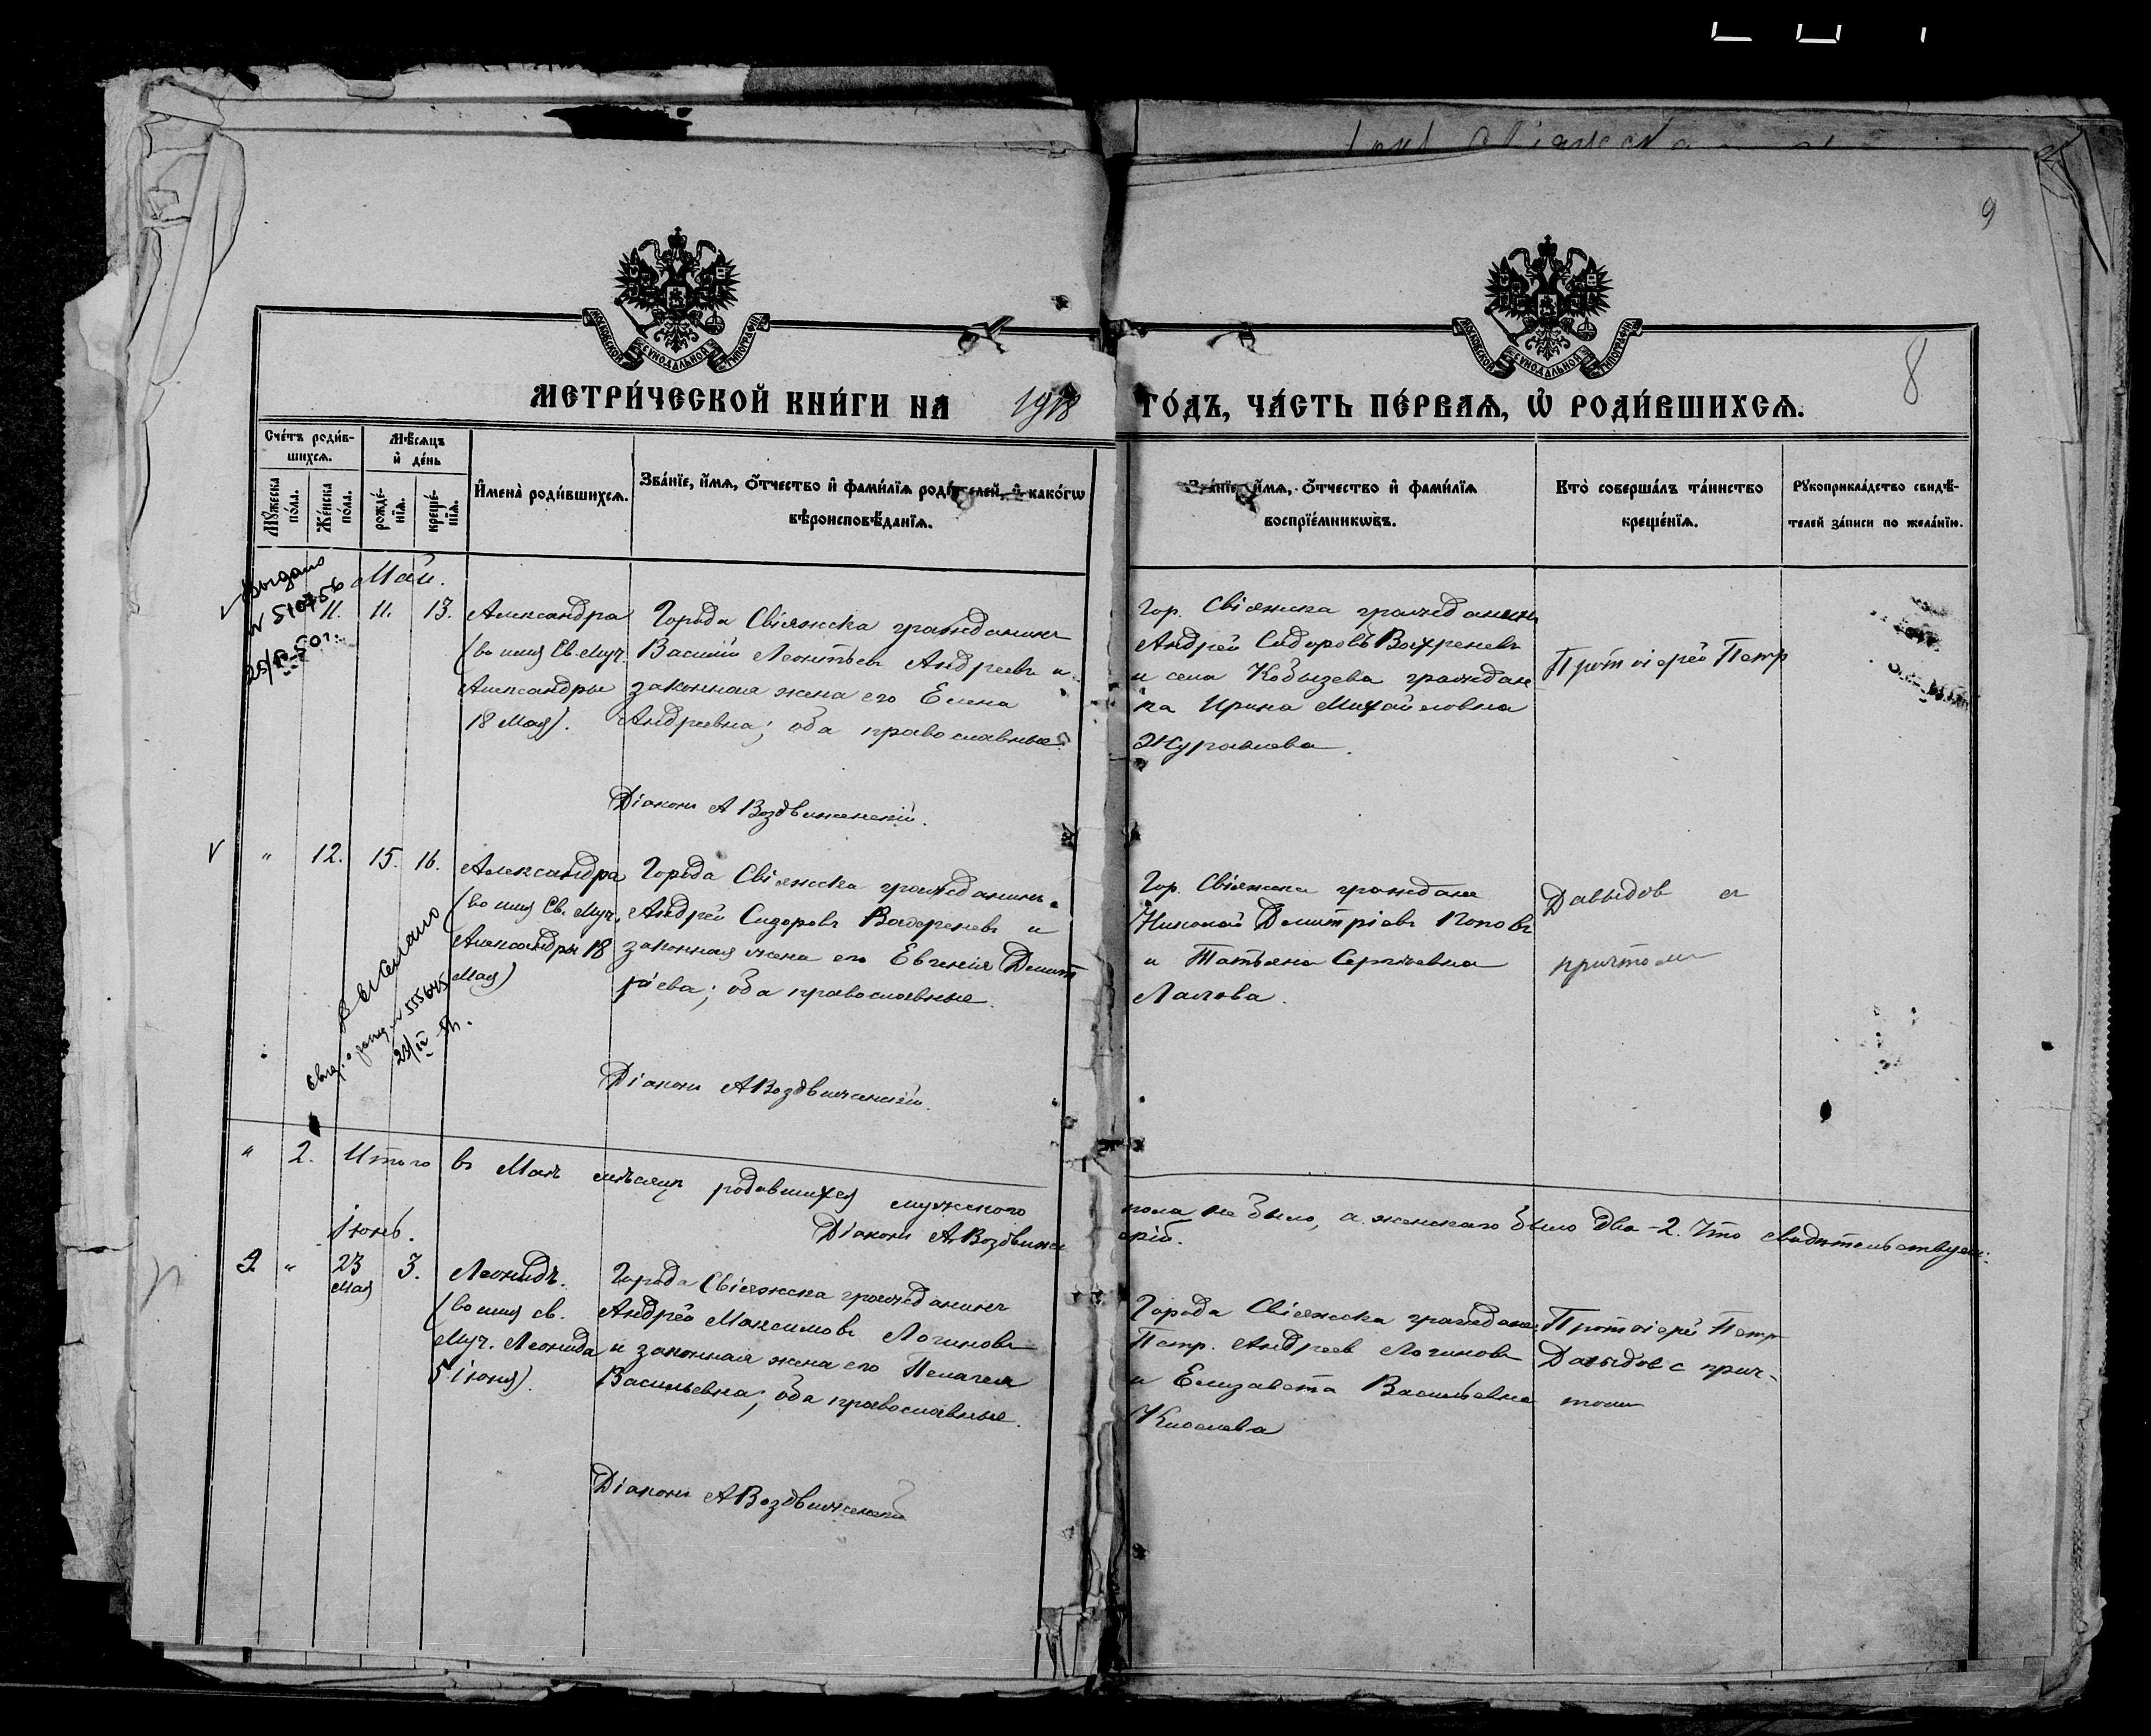 9
МОСКОВСКОЙ СѴНОДАЛЬНОЙ ТИПОГРАФІИ
МОСКОВСКОЙ СѴНОДАЛЬНОЙ ТИПОГРАФІИ
8
МЕТРИ́ЧЕСКОЙ КНИ́ГИ НА 1918 ГО́ДЪ, ЧА́СТЬ ПЕ́РВАѦ, Ѡ҆ РОДИ́ВШИХСѦ.
Сче́тъ роди́в-
шихсѧ.
Мꙋ́жеска по́ла.
Же́нска по́ла.
Мѣ́сѧцъ
и҆ де́нь
рожде́-
нїѧ.
креще́-
нїѧ.
И҆мена̀ роди́вшихсѧ.
Зва́нїе, и҆́мѧ, ѻ҆́тчество и҆ фами́лїѧ роди́телей, и҆ како́гѡ
вѣроисповѣ́данїѧ.
Зва́нїе, и҆́мѧ, ѻ҆́тчество и҆ фами́лїѧ
воспрїе́мникѡвъ.
Кто̀ соверша́лъ та́инство
креще́нїѧ.
Рꙋкоприкла́дство свидѣ́-
телей за́писи по жела́нїю.
Выдано
Май.
11. 11. 13.
Александра
(во имя Св. Муч.
Александры
18 Мая).
Города Свіяжска гражданинъ
Василій Леонтьевъ Андреевъ и
законная жена его Елена
Андреевна; оба православные.
Діаконъ А Воздвиженскій.
Гор. Свіяжска гражданинъ
Андрей Сидоровъ
и села Кобызева граждан
ка Ирина Михайловна
Журавлева.
Протоіерей Петр
" 12. 15. 16.
Александра
(во имя Св. Муч.
Александры 18
Мая)
Города Свіяжска гражданинъ
Андрей Сидоровъ и
законная жена его Евгенія Димит
ріева; оба православные.
Діаконъ А Воздвиженскій.
Гор. Свіяжска граждане
Николай Димитріевъ Поповъ
и Татьяна Сергѣевна
Давыдов съ
причтомъ
" 2. Итого въ Маѣ мѣсяцѣ родившихся мужского
пола не было, а женскаго было два - 2. Что свидѣтельствуемъ:
Діаконъ А. Воздвижен
скій.
Іюнь.
2. " 23 3.
Мая
Леонидъ.
(во имя св.
Муч. Леонида
5 іюня).
Города Свіяжска гражданинъ
Андрей Максимовъ Логиновъ
и законная жена его Пелагея
Васильевна; оба православные.
Діаконъ А Воздвиженскій
Города Свіяжска граждане
Петр. Андреев Логиновъ
и Елизавета Васильевна
Киселева
Протоіерей Петр
Давыдов с прич-
томъ